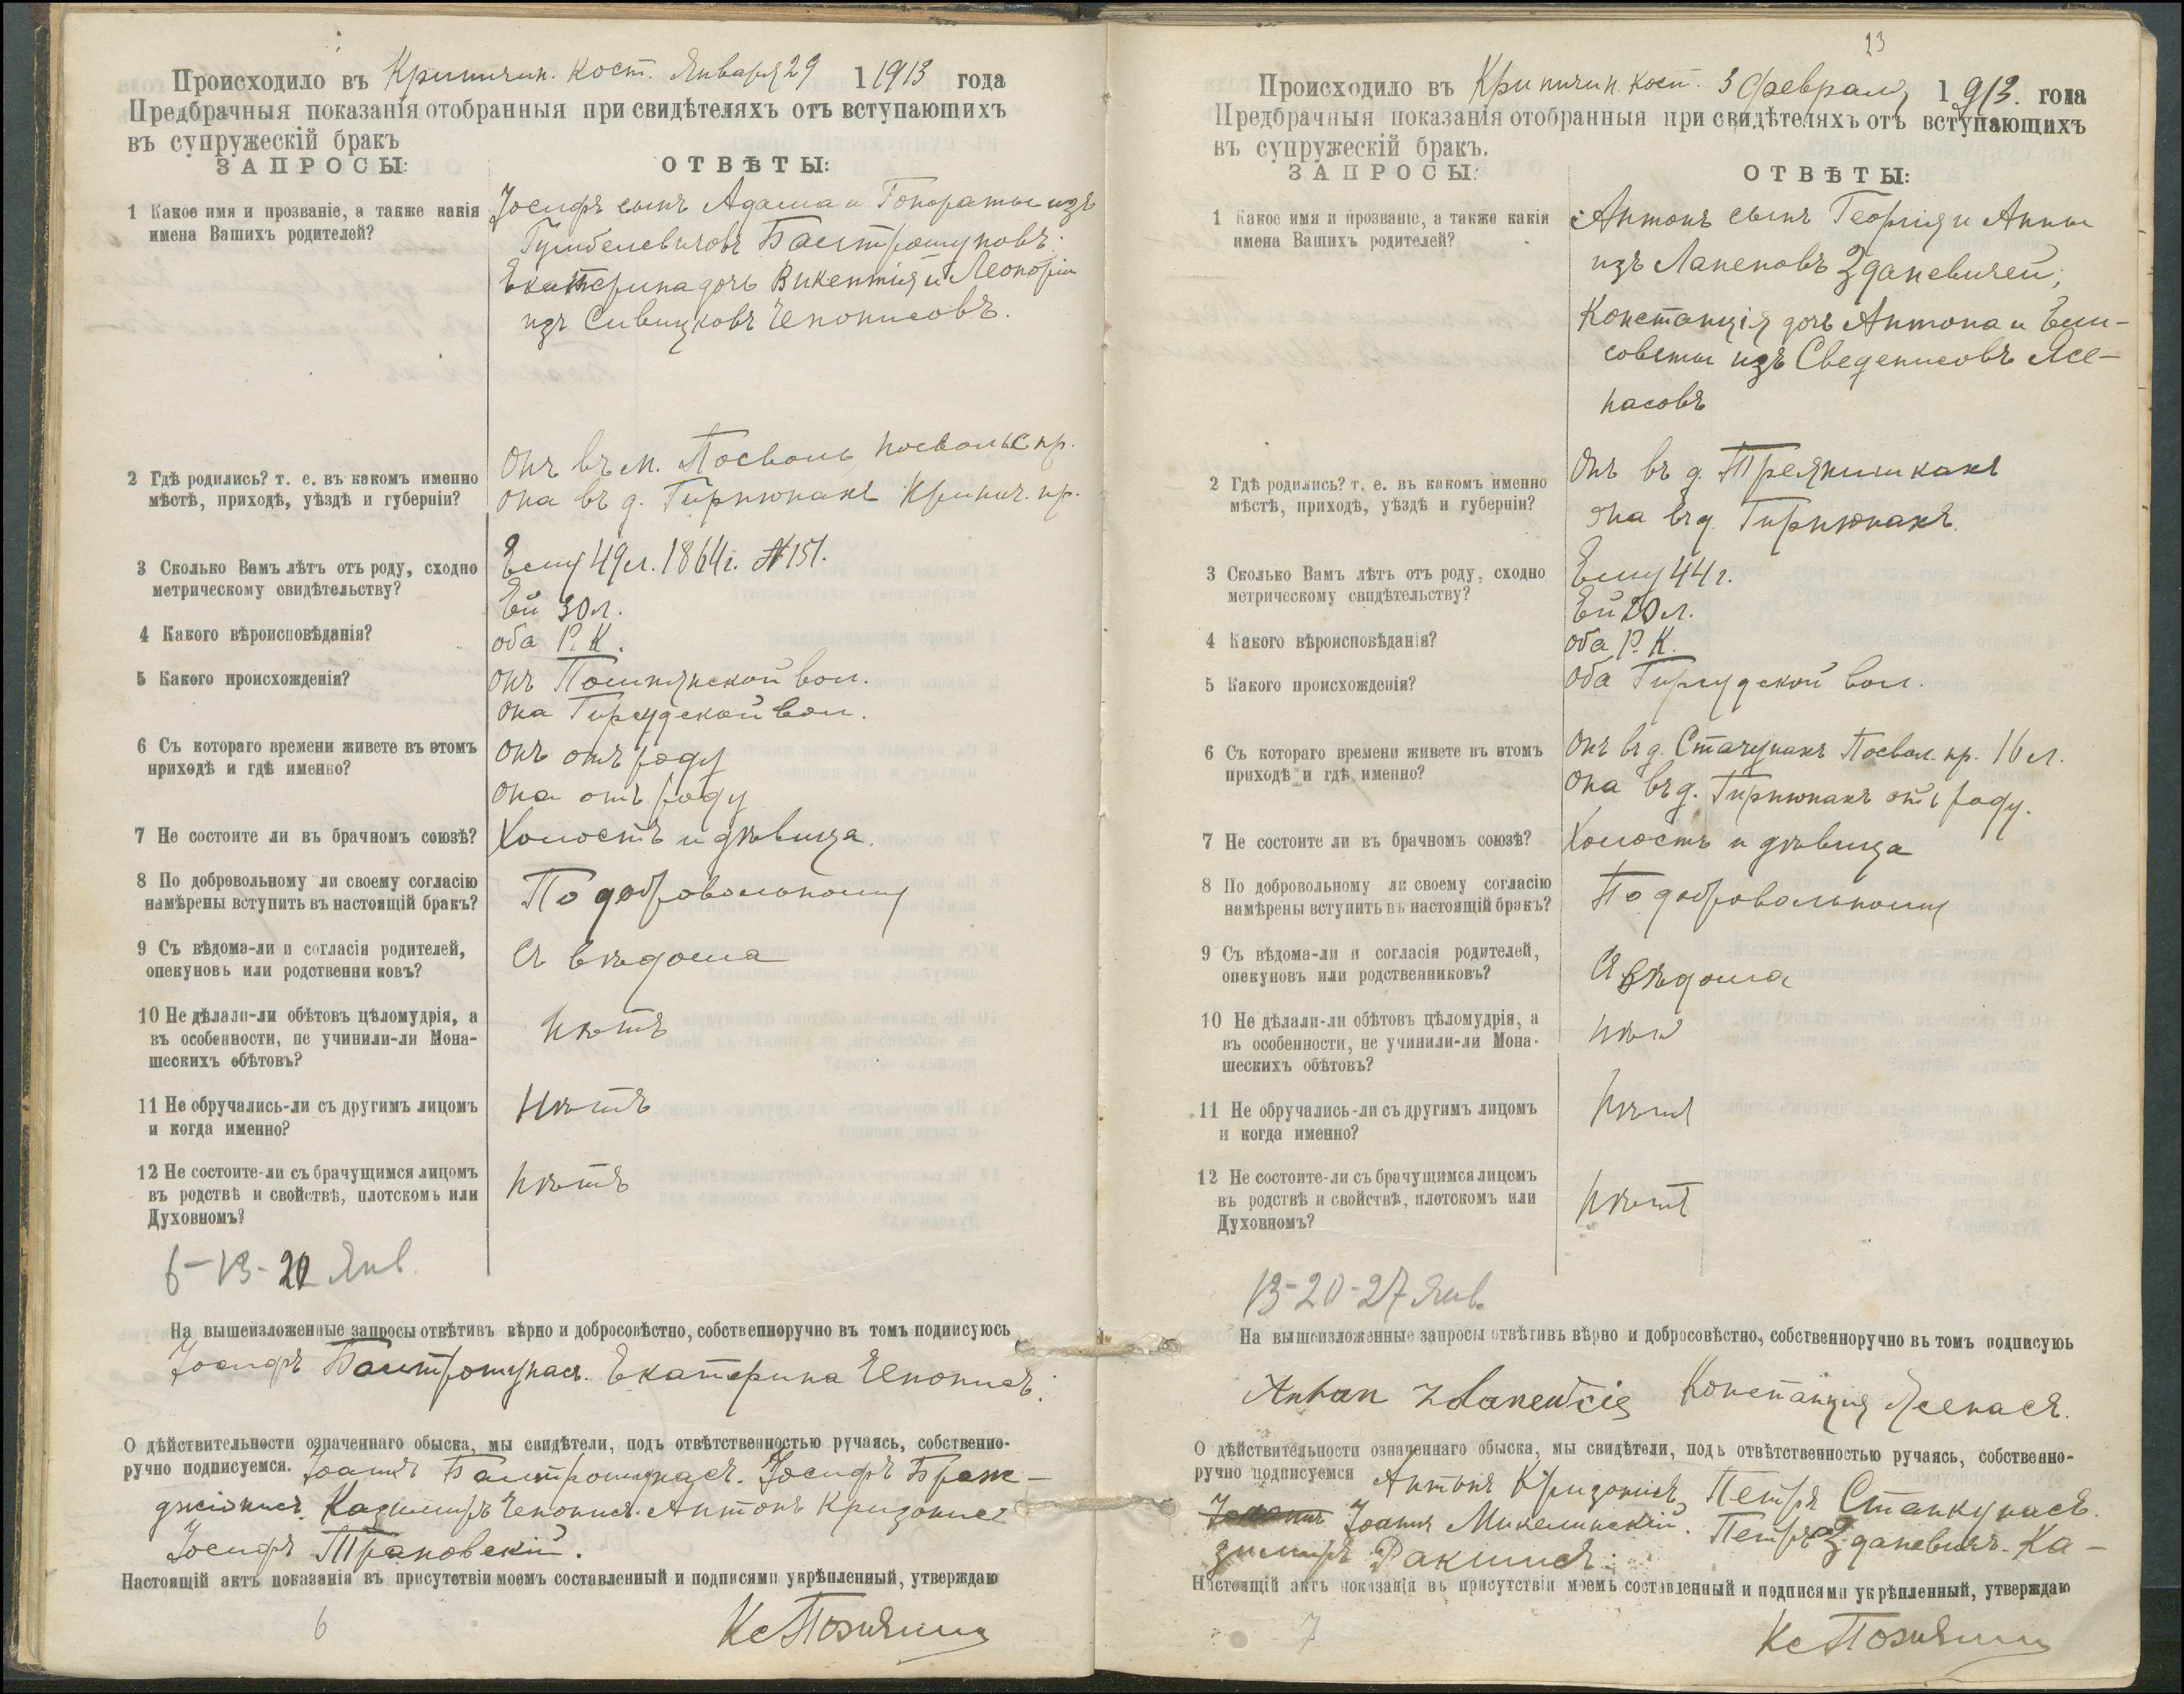 Происходило въ Криничин. кост. Января 29 1 1913 года
Предбрачныя показанія отобранныя при свидѣтеляхъ отъ вступающихъ
въ супружескій бракъ
ЗАПРОСЫ: ОТВѢТЫ:
1 Какое имя и прозваніе, а также какія
имена Вашихъ родителей?
Іосифъ сынъ Адама и Гонораты изъ
Гумбелевичовъ Балтрошуновъ.
Екатерина дочь Викентія и Леоноры
изъ Сивицковъ Ченонисовъ.
2 Гдѣ родились? т. е. въ какомъ именно
мѣстѣ, приходѣ, уѣздѣ и губерніи?
Онъ въ м. Посволь Посвольс. пр.
Она въ д. Гирнюнахъ Кринич. пр.
3 Сколько Вамъ лѣтъ отъ роду, сходно
метрическому свидѣтельству?
Ему 49 л. 1864 г. № 151.
Ей 30 л.
4 Какого вѣроисповѣданія?
оба Р. К.
5 Какого происхожденія?
онъ Пошлинской вол.
она Гирсудской вол.
6 Съ котораго времени живете въ этомъ
приходѣ и гдѣ именно?
онъ отъ роду
она отъ роду
7 Не состоите ли въ брачномъ союзѣ?
Холостъ и дѣвица.
8 По добровольному ли своему согласію
намѣрены вступить въ настоящій бракъ?
По добровольному
9 Съ вѣдома-ли и согласія родителей,
опекуновъ или родственни ковъ?
Съ вѣдома
10 Не дѣлали-ли обѣтовъ цѣломудрія, а
въ особенности, не учинили-ли Мона-
шескихъ обѣтовъ?
Нѣтъ
11 Не обручались-ли съ другимъ лицомъ
и когда именно?
Нѣтъ
12 Не состоите-ли съ брачущимся лицомъ
въ родствѣ и свойствѣ, плотскомъ или
Духовномъ?
Нѣтъ
6-13-20 Янв.
На вышеизложенные запросы отвѣтивъ вѣрно и добросовѣстно, собственноручно въ томъ подписуюсь
Іосифъ Балтрошунас. Екатерина Ченонисъ.
О дѣйствительности означеннаго обыска, мы свидѣтели, подъ отвѣтственностью ручаясь, собственно-
ручно подписуемся. Іоаннъ Балтрошунасъ. Іосифъ Браж-
джюнисъ. Казимиръ Ченонисъ. Антонъ Кризонисъ
Іосифъ Трановскій.
Настоящій актъ показанія въ присутствіи моемъ составленный и подписями укрѣпленный, утверждаю
6
23
Происходило въ Криничин. кост. 3 февраля 1 913. года
Предбрачныя показанія отобранныя при свидѣтеляхъ отъ вступающихъ
въ супружескій бракъ.
ЗАПРОСЫ: ОТВѢТЫ:
1 Какое имя и прозваніе, а также какія
имена Вашихъ родителей?
Антонъ сынъ Георгія и Анны
изъ Лапеновъ Зданевичей;
Констанція дочь Антона и Ели-
саветы изъ Сведенисовъ Ясе-
насовъ
2 Гдѣ родились? т. е. въ какомъ именно
мѣстѣ, приходѣ, уѣздѣ и губерніи?
Онъ въ д. Трелнишкахъ
она въ д. Гирнюнахъ.
3 Сколько Вамъ лѣтъ отъ роду, сходно
метрическому свидѣтельству?
Ему 44 г.
Ей 20 л.
4 Какого вѣроисповѣданія?
оба Р. К.
5 Какого происхожденія?
оба Гирсудской вол.
6 Съ котораго времени живете въ этомъ
приходѣ и гдѣ именно?
Онъ въ д. Стачунахъ Посвол. пр. 16 л.
Она въ д. Гирнюнахъ отъ роду.
7 Не состоите ли въ брачномъ союзѣ?
Холостъ и дѣвица
8 По добровольному ли своему согласію
намѣрены вступить въ настоящій бракъ?
По добровольному
9 Съ вѣдома-ли и согласія родителей,
опекуновъ или родственниковъ?
Съ вѣдома
10 Не дѣлали-ли обѣтовъ цѣломудрія, а
въ особенности, не учинили-ли Мона-
шескихъ обѣтовъ?
Нѣтъ
11 Не обручались-ли съ другимъ лицомъ
и когда именно?
Нѣтъ
12 Не состоите-ли съ брачущимся лицомъ
въ родствѣ и свойствѣ, плотскомъ или
Духовномъ?
Нѣтъ
13-20-27 Янв.
На вышеизложенные запросы отвѣтивъ вѣрно и добросовѣстно, собственноручно въ томъ подписуюь
Antan Констанция Ясенасъ.
О дѣйствительности означеннаго обыска, мы свидѣтели, подъ отвѣтственностью ручаясь, собственно-
ручно подписуемся Антонъ Кризонисъ, Петръ Станкунасъ.
Іоаннъ Микелинскій. Петръ Зданевичъ. Ка-
зимиръ Ракшисъ.
Настоящій актъ показанія въ присутствіи моемъ составленный и подписями укрѣпленный, утверждаю
7